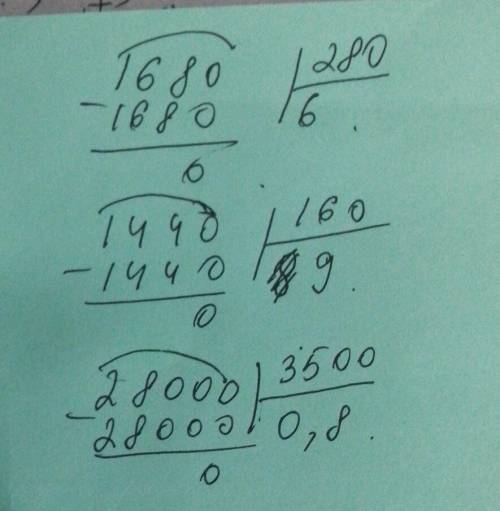 1680 | 280
-1680 | 6.
0
1440 | 160
-1440 | 9.
0
-28000 | 3500
28000 | 0,8.
0